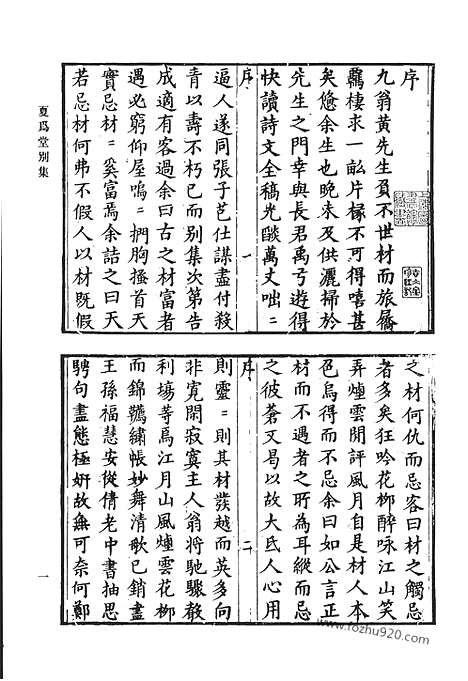 夏爲堂別集
序
九翁黄先生負不世材而旅食
鷦棲求一畝片椽不可得嘻甚
矣憊余生也晚未及供灑掃於
先生之門幸與長君禹弓遊得
快讀詩文全稿光燄萬丈咄＝
序
一
逼人遂同張子邑仕謀盡付殺
青以壽不朽已而別集次第告
成適有客過余曰古之材富者
遇必窮仰屋嗚＝捫胸搔首天
實忌材＝奚富焉余詰之曰天
若忌材何弗不假人以材既假
之材何仇而忌客曰材之觸忌
者多矣狂吟花柳醉咏江山笑
弄煙雲閒評風月自是材人本
色烏得而不忌余曰如公言正
材而不遇者之所為耳縱而忌
之彼蒼又曷以故大氐人心用
序
二
則靈＝則其材發越而英多向
非寛閑寂寞主人翁將馳驟轂
利塲等爲江月山風煙雲花柳
而錦韀繡帳妙舞清歌已銷盡
王孫福慧安從倩老中書抽思
騁句盡態極姸故無可奈何鄭
一
www.fozhu920.com